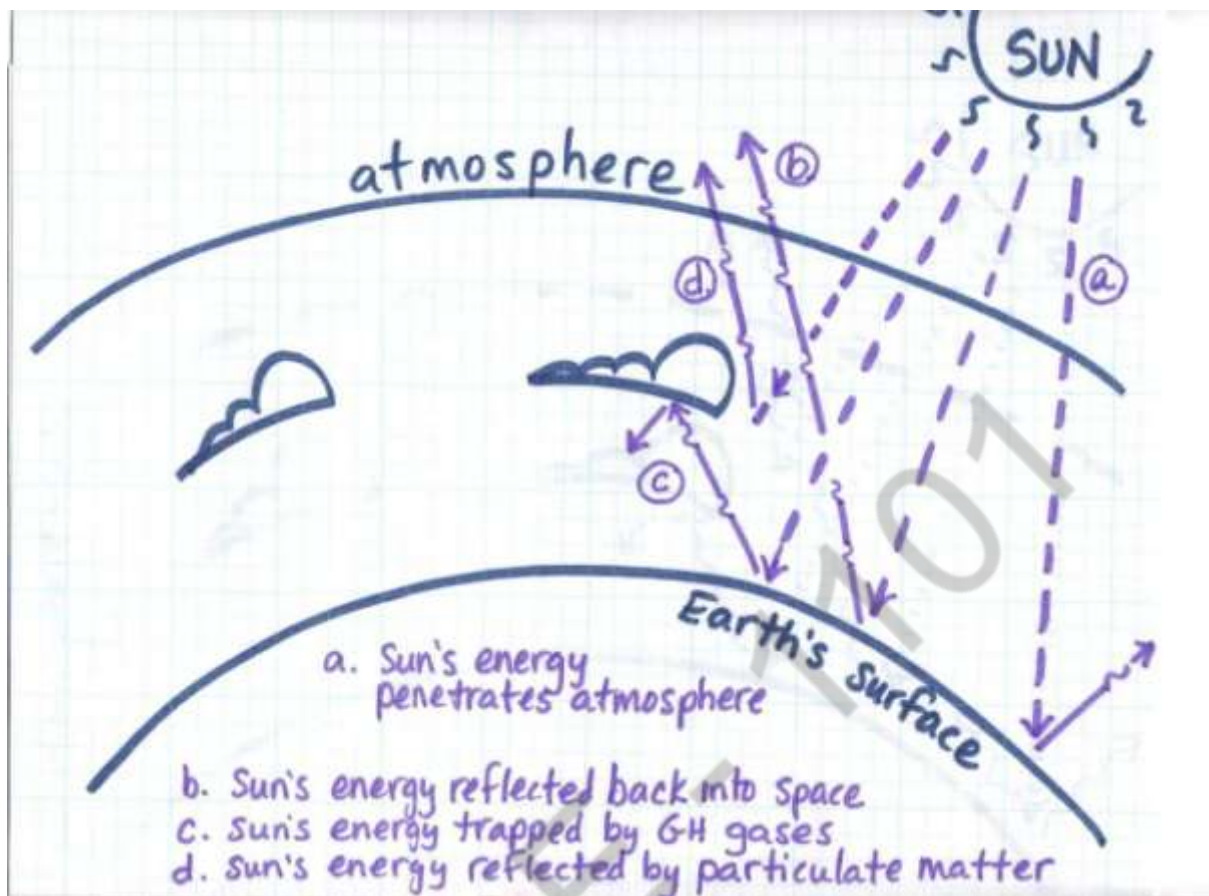 SUN
atmosphere
b
d.
a
c
Earth's surface
a. Sun's energy
penetrates atmosphere
b. Sun's energy reflected back into space
c. Sun's energy trapped by GH gases
d. Sun's energy reflected by particulate matter